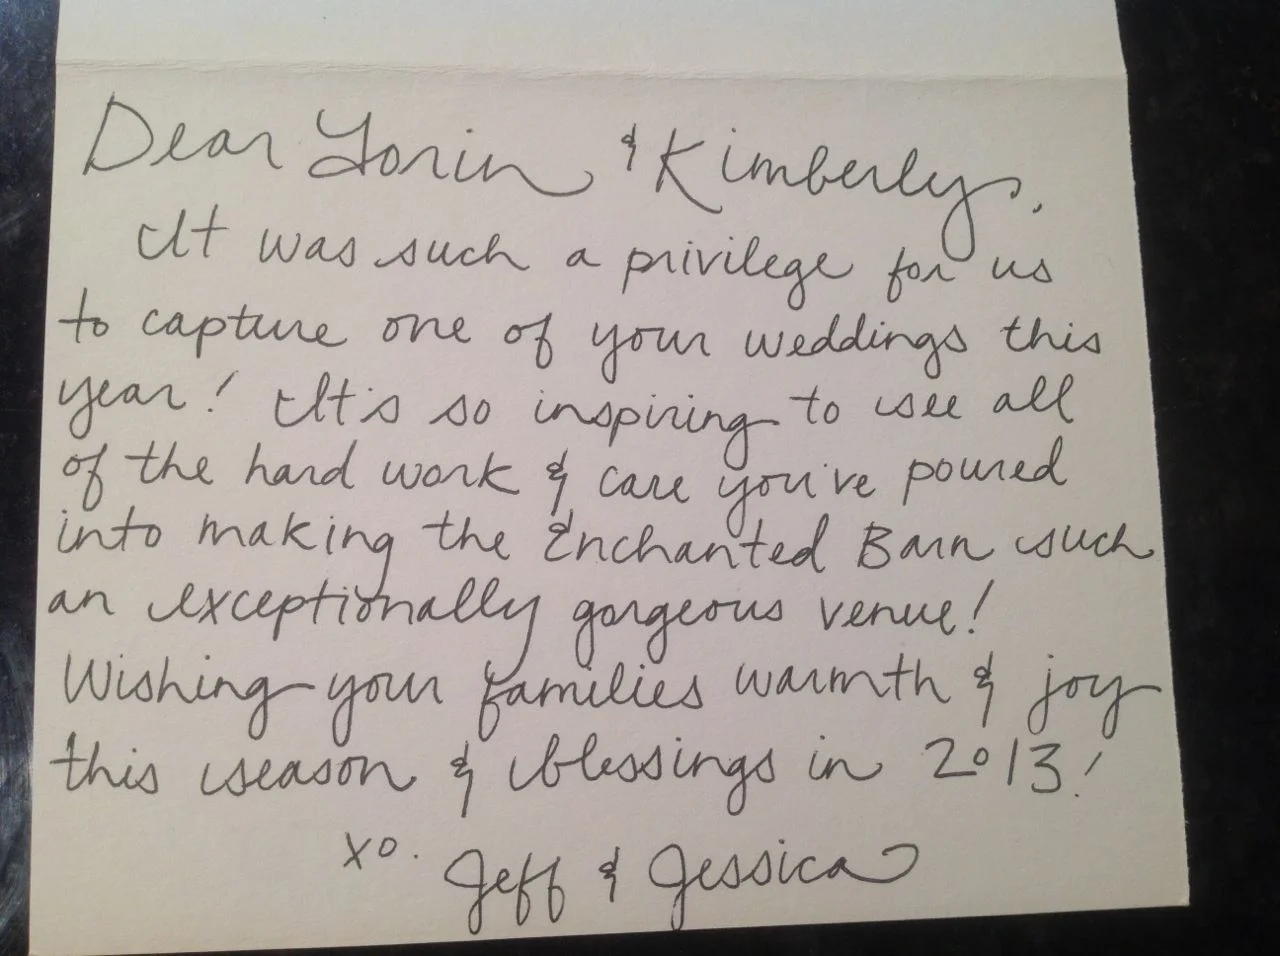 Dear Lorin & Kimberly,
It was such a privilege for us
to capture one of your weddings this
year! It's so inspiring to see all
of the hard work & care you've poured
into making the Enchanted Barn such
an exceptionally gorgeous venue!
Wishing your families warmth & joy
this season & blessings in 2013!
xo. Jeff & Jessica